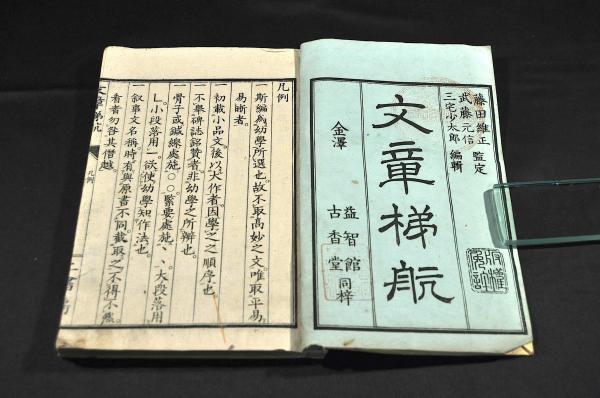 藤田維正 監定
武藤元信
三宅少太郎 編輯
文章梯航
金澤
益智館
古香堂 同梓
版權免許
凡例
一斯編為幼學所選也。故不取高妙之文。唯取平易。
易晰者。
一初載小品文。後以大作者。因學之之順序也。
一不舉碑誌銘贊者。非幼學之所辦也。
一骨子或鍼線處施○○。緊要處施、、。大段落用
L。小段落用一。欲使幼學知作法也。
一叙事文名稱。時有與原書不同。截取之不得不然。
看者勿咎其僭越。
文章梯航
凡例